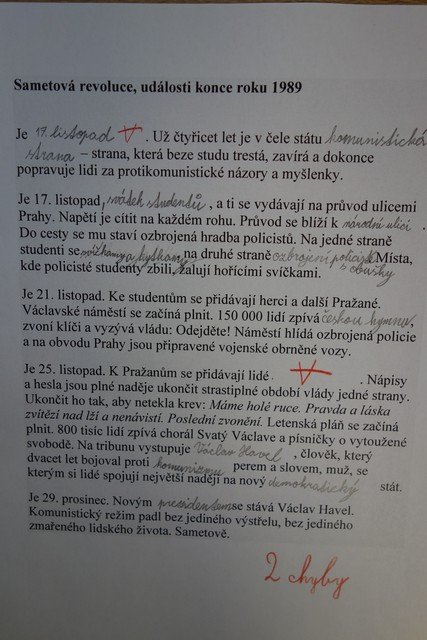 Sametová revoluce, události konce roku 1989
Je 17. listopad V. Už čtyřicet let je v čele státu komunistická
strana – strana, která beze studu trestá, zavírá a dokonce
popravuje lidi za protikomunistické názory a myšlenky.
Je 17. listopad, svátek studentů, a ti se vydávají na průvod ulicemi
Prahy. Napětí je cítit na každém rohu. Průvod se blíží k národní ulici.
Do cesty se mu staví ozbrojená hradba policistů. Na jedné straně
studenti se svíčkamy a kytkamy, na druhé straně ozbrojení policisté s obušky. Místa,
kde policisté studenty zbili, žalují hořícími svíčkami.
Je 21. listopad. Ke studentům se přidávají herci a další Pražané.
Václavské náměstí se začíná plnit. 150 000 lidí zpívá českou hymnu,
zvoní klíči a vyzývá vládu: Odejděte! Náměstí hlídá ozbrojená policie
a na obvodu Prahy jsou připravené vojenské obrněné vozy.
Je 25. listopad. K Pražanům se přidávají lidé V. Nápisy
a hesla jsou plné naděje ukončit strastiplné období vlády jedné strany.
Ukončit ho tak, aby netekla krev: Máme holé ruce. Pravda a láska
zvítězí nad lží a nenávistí. Poslední zvonění. Letenská pláň se začíná
plnit. 800 tisíc lidí zpívá chorál Svatý Václave a písničky o vytoužené
svobodě. Na tribunu vystupuje Václav Havel, člověk, který
dvacet let bojoval proti komunizmu perem a slovem, muž, se
kterým si lidé spojují největší naději na nový demokratický stát.
Je 29. prosinec. Novým presidentem se stává Václav Havel.
Komunistický režim padl bez jediného výstřelu, bez jediného
zmařeného lidského života. Sametově.
2 chyby